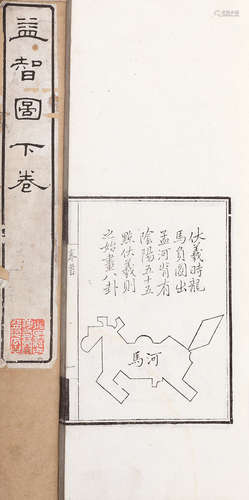 益智圖下卷
伏羲時龍
馬負圖出
孟河背有
陰陽五十五
點伏羲則
之始畫八卦
河馬
卷首